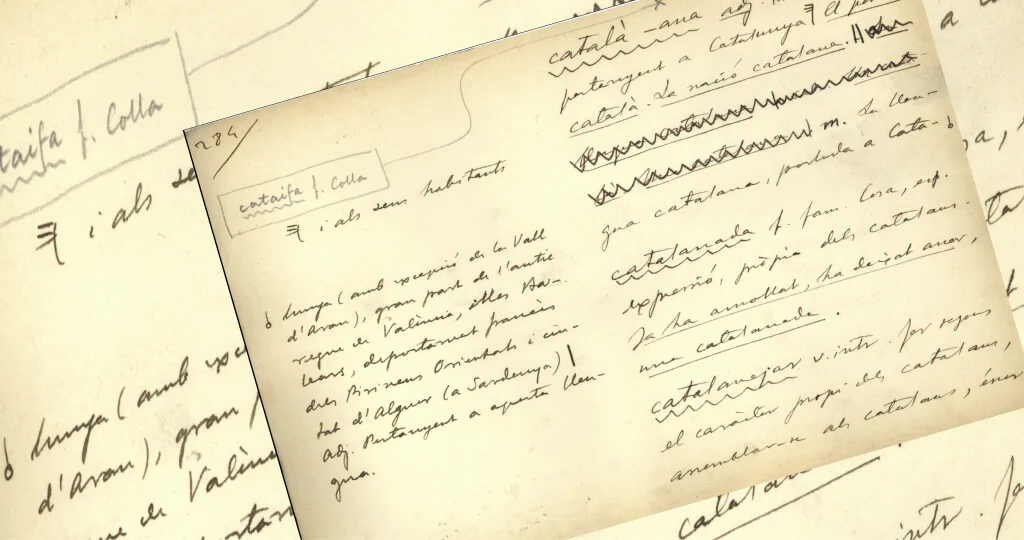 284
cataifa f. Colla
i als seus habitants
lunya (amb excepció de la Vall
d'Aran), gran part de l'antic
regne de València, illes Ba-
lears, departament francès
dels Pirineus Orientals i ciu-
tat d'Alguer (a Sardenya)
adj. Pertanyent a aquesta llen-
gua.
català -ana adj.
pertanyent a Catalunya
català. La nació catalana.
m. La llen-
gua catalana, parlada a Cata-
catalanada f. fam. Cosa, esp.
expressió, pròpia dels catalans.
Ja ha amollat, ha deixat anar,
una catalanada.
catalanejar v. intr.
el caràcter propi dels catalans,
assemblar-se als catalans, ésser
taifa f. Colla
i als
lunya (amb
d'Aran), gran
de